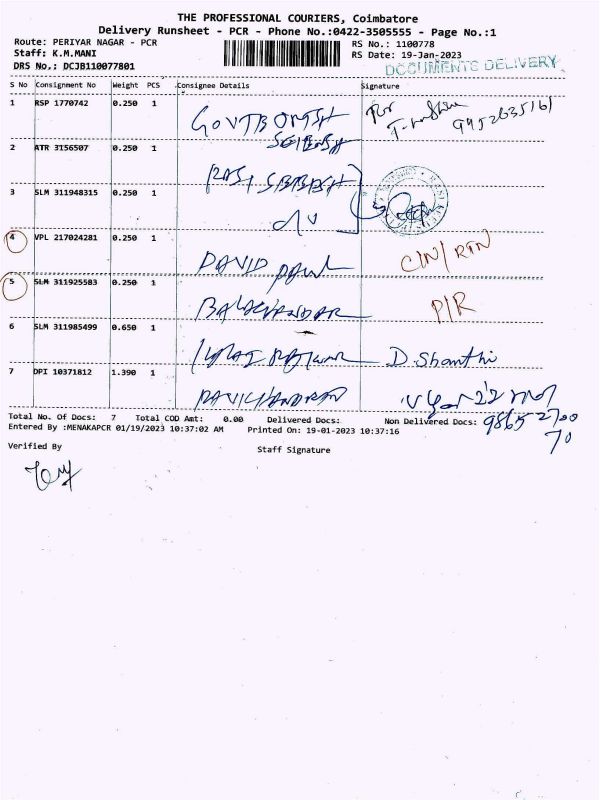 THE PROFESSIONAL COURIERS, Coimbatore
Delivery Runsheet - PCR - Phone No.:0422-3505555 - Page No.:1
Route: PERIYAR NAGAR - PCR RS No.: 1100778
Staff: K.M.MANI RS Date: 19-Jan-2023
DRS No.: DCJB110077801 DOCUMENTS DELIVERY
S No Consignment No Weight PCS Consignee Details Signature
1 RSP 1770742 0.250 1
2 ATR 3156507 0.250 1
3 SLM 311948315 0.250 1
4 VPL 217024281 0.250 1 DAVID PAUL
5 SLM 311925583 0.250 1 P/R
6 SLM 311985499 0.650 1 D. Shanthi
7 DPI 10371812 1.390 1
Total No. Of Docs: 7 Total COD Amt: 0.00 Delivered Docs: Non Delivered Docs:
Entered By :MENAKAPCR 01/19/2023 10:37:02 AM Printed On: 19-01-2023 10:37:16
Verified By Staff Signature